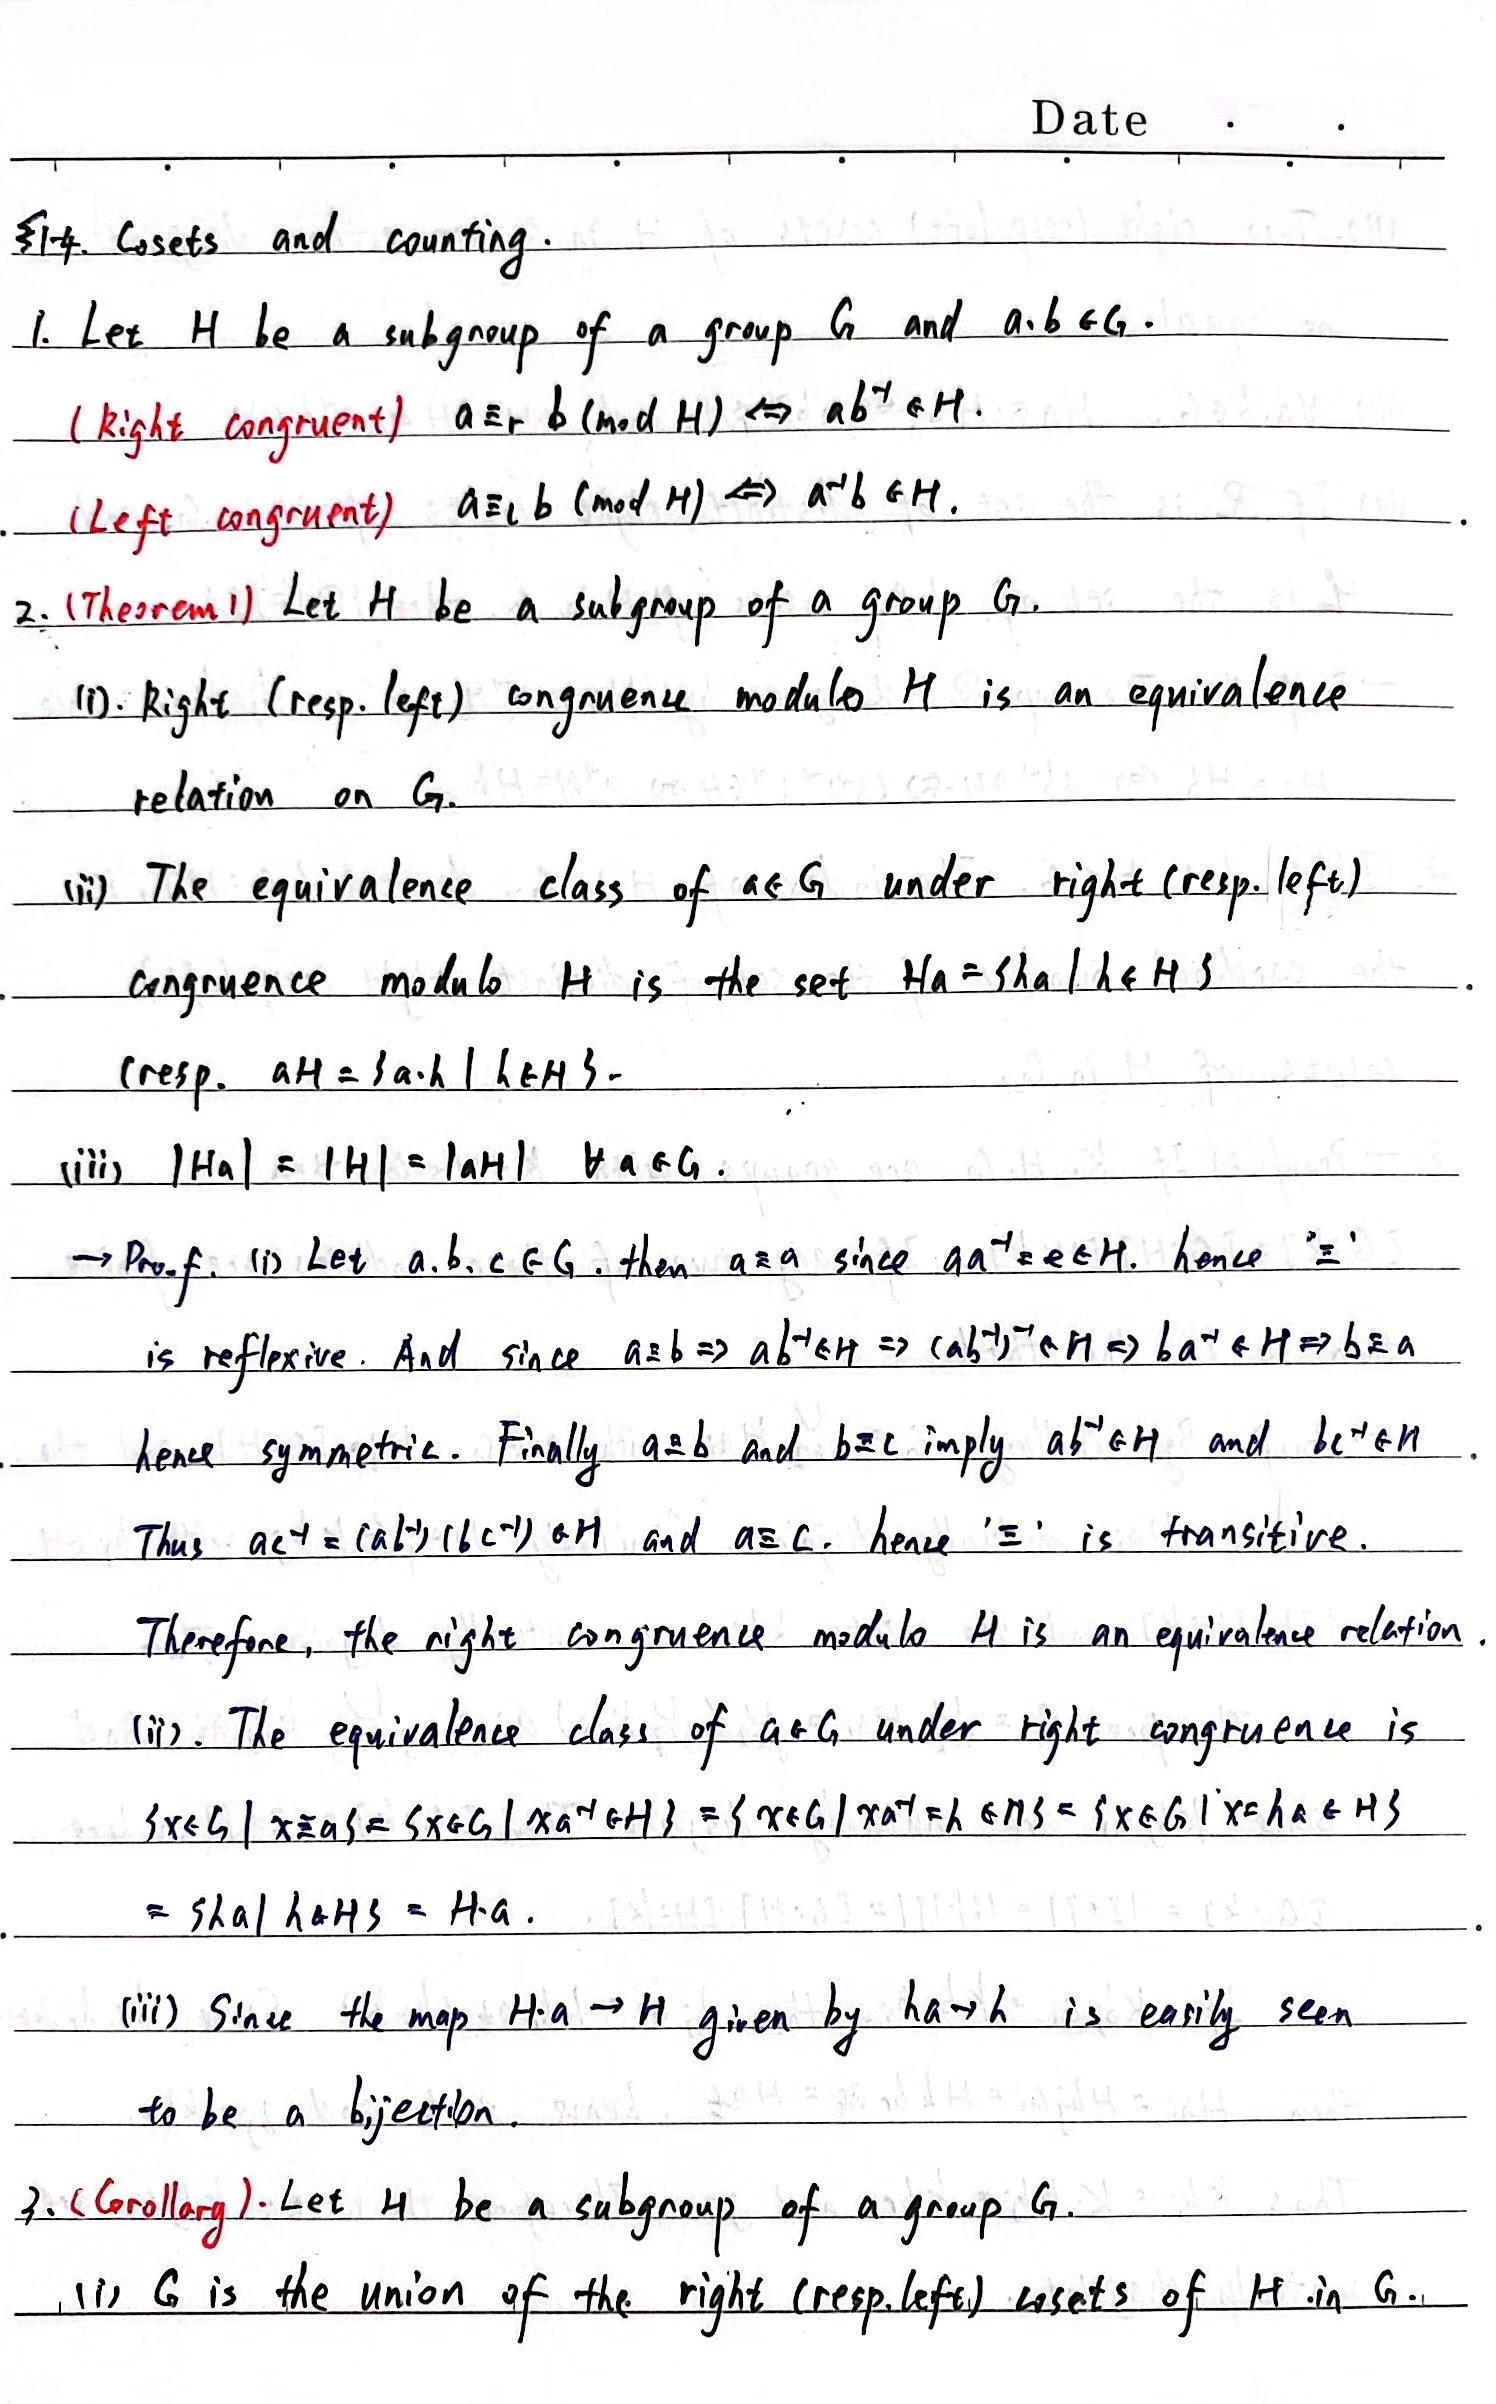 Date . .
§1-4. Cosets and counting.
1. Let H be a subgroup of a group G and a.b ∈ G.
(Right congruent) a ≡r b (mod H) ⇔ ab⁻¹ ∈ H.
(Left congruent) a ≡l b (mod H) ⇔ a⁻¹b ∈ H.
2. (Theorem 1) Let H be a subgroup of a group G.
(i). Right (resp. left) congruence modulo H is an equivalence
relation on G.
(ii) The equivalence class of a ∈ G under right (resp. left)
congruence modulo H is the set Ha = {ha | h ∈ H}
(resp. aH = {a·h | h ∈ H}.
(iii) |Ha| = |H| = |aH| ∀ a ∈ G.
→ Proof. (i) Let a.b.c ∈ G. then a ≡ a since aa⁻¹ = e ∈ H. hence '≡'
is reflexive. And since a ≡ b ⇒ ab⁻¹ ∈ H ⇒ (ab⁻¹)⁻¹ ∈ H ⇒ ba⁻¹ ∈ H ⇒ b ≡ a
hence symmetric. Finally a ≡ b and b ≡ c imply ab⁻¹ ∈ H and bc⁻¹ ∈ H
Thus ac⁻¹ = (ab⁻¹)(bc⁻¹) ∈ H and a ≡ c. hence '≡' is transitive.
Therefore, the right congruence modulo H is an equivalence relation.
(ii). The equivalence class of a ∈ G under right congruence is
{x ∈ G | x ≡ a} = {x ∈ G | xa⁻¹ ∈ H} = {x ∈ G | xa⁻¹ = h ∈ H} = {x ∈ G | x = ha ∈ H}
= {ha | h ∈ H} = H·a.
(iii) Since the map H·a → H given by ha → h is easily seen
to be a bijection.
3. (Corollary). Let H be a subgroup of a group G.
(i) G is the union of the right (resp. left) cosets of H in G.